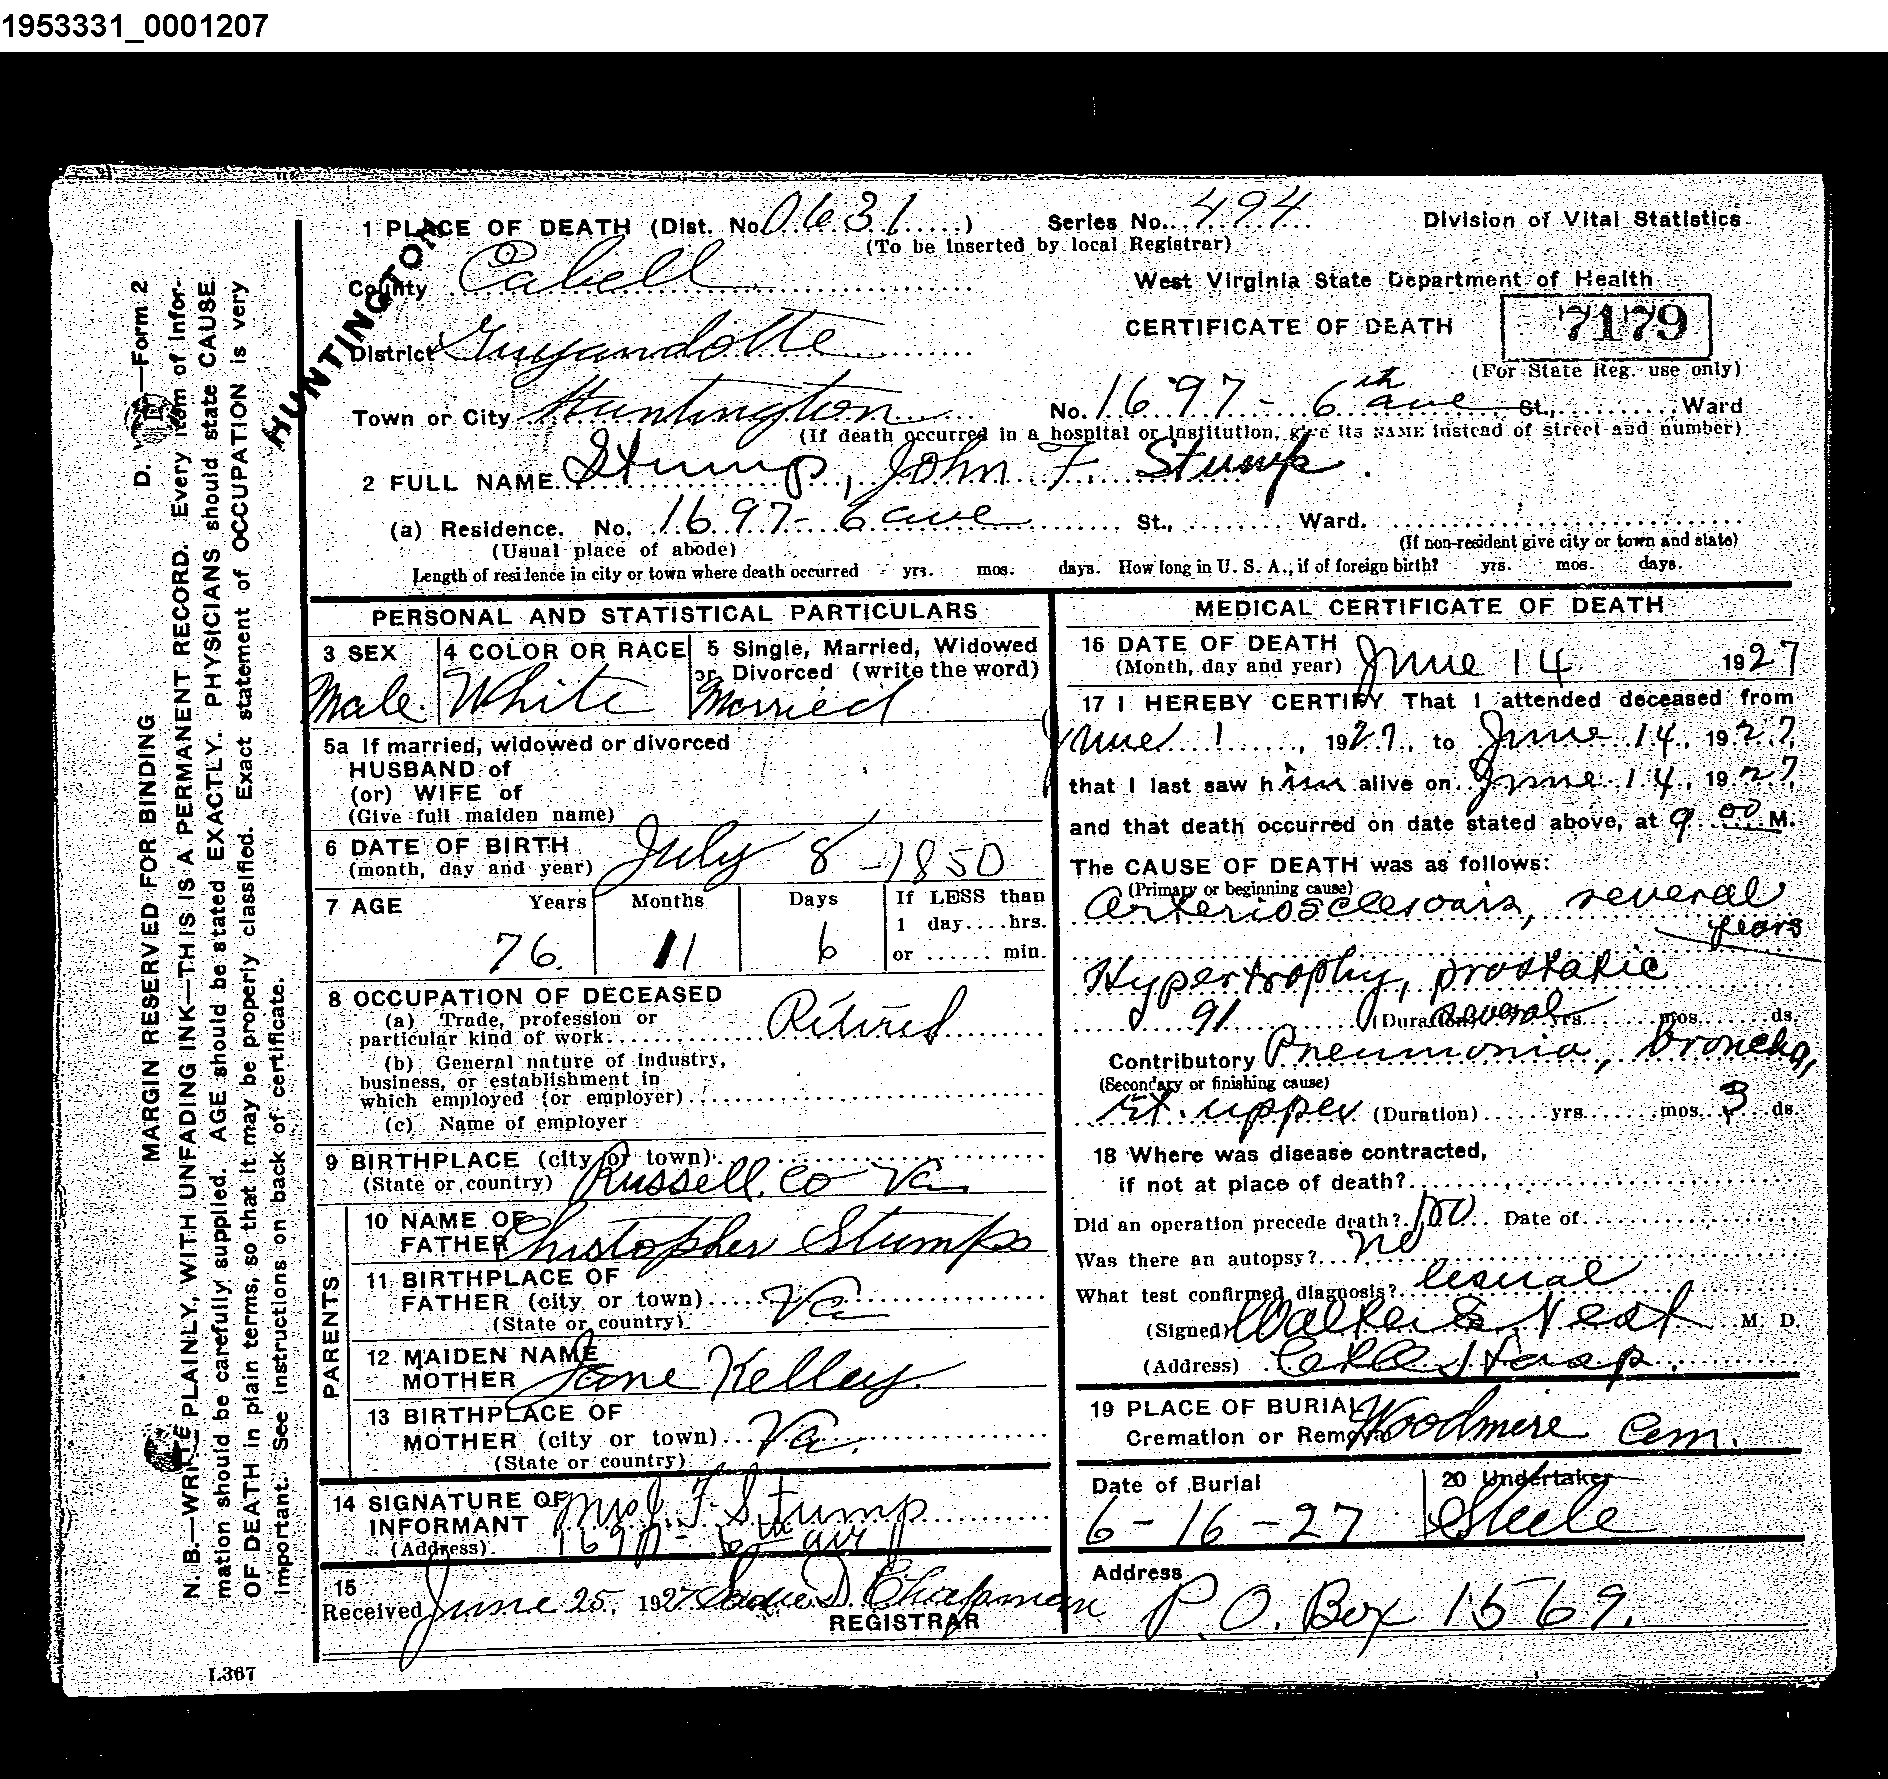 1953331_0001207
1 PLACE OF DEATH (Dist. No. 0631)
Series No. 494
Division of Vital Statistics
(To be inserted by local Registrar)
HUNTINGTON
County Cabell
West Virginia State Department of Health
CERTIFICATE OF DEATH
7179
(For State Reg. use only)
District Guyandotte
Town or City Huntington
No. 1697 - 6th ave St., Ward
(If death occurred in a hospital or institution, give its NAME instead of street and number)
2 FULL NAME Stump, John F. Stump.
(a) Residence. No. 1697 - 6 ave St., Ward.
(Usual place of abode)
(If non-resident give city or town and state)
Length of residence in city or town where death occurred yrs. mos. days. How long in U. S. A., if of foreign birth? yrs. mos. days.
PERSONAL AND STATISTICAL PARTICULARS
3 SEX
Male.
4 COLOR OR RACE
White
5 Single, Married, Widowed
or Divorced (write the word)
Married
5a If married, widowed or divorced
HUSBAND of
(or) WIFE of
(Give full maiden name)
6 DATE OF BIRTH
(month, day and year) July 8 - 1850
7 AGE Years Months Days If LESS than
1 day....hrs.
76. 11 6 or ...... min.
8 OCCUPATION OF DECEASED
(a) Trade, profession or
particular kind of work Retired
(b) General nature of industry,
business, or establishment in
which employed (or employer)
(c) Name of employer
9 BIRTHPLACE (city or town)
(State or country) Russell Co Va.
PARENTS
10 NAME OF
FATHER Christopher Stump
11 BIRTHPLACE OF
FATHER (city or town) Va
(State or country)
12 MAIDEN NAME
MOTHER Jane Kelley
13 BIRTHPLACE OF
MOTHER (city or town) Va.
(State or country)
14 SIGNATURE OF
INFORMANT Mrs J. F. Stump
(Address) 1697 - 6th ave
15
Received June 25, 1927 Sadie D. Chapman
REGISTRAR
MEDICAL CERTIFICATE OF DEATH
16 DATE OF DEATH
(Month, day and year) June 14 1927
17 I HEREBY CERTIFY That I attended deceased from
June 1, 1927, to June 14, 1927,
that I last saw him alive on June 14, 1927,
and that death occurred on date stated above, at 9 00 M.
The CAUSE OF DEATH was as follows:
(Primary or beginning cause)
Arteriosclerosis, several
years
Hypertrophy, prostatic
91 (Duration) several yrs. mos. ds.
Contributory Pneumonia, broncho,
(Secondary or finishing cause)
rt. upper (Duration) yrs. mos. 3 ds.
18 Where was disease contracted,
if not at place of death?
Did an operation precede death? no Date of
Was there an autopsy? no
What test confirmed diagnosis? usual
(Signed) Walter E Vest M. D.
(Address)
19 PLACE OF BURIAL
Cremation or Removal Woodmere Cem.
Date of Burial
6 - 16 - 27
20 Undertaker
Steele
Address
P.O. Box 1569.
D. —Form 2
MARGIN RESERVED FOR BINDING
N. B.—WRITE PLAINLY, WITH UNFADING INK—THIS IS A PERMANENT RECORD. Every item of infor-
mation should be carefully supplied. AGE should be stated EXACTLY. PHYSICIANS should state CAUSE
OF DEATH in plain terms, so that it may be properly classified. Exact statement of OCCUPATION is very
important. See instructions on back of certificate.
L367